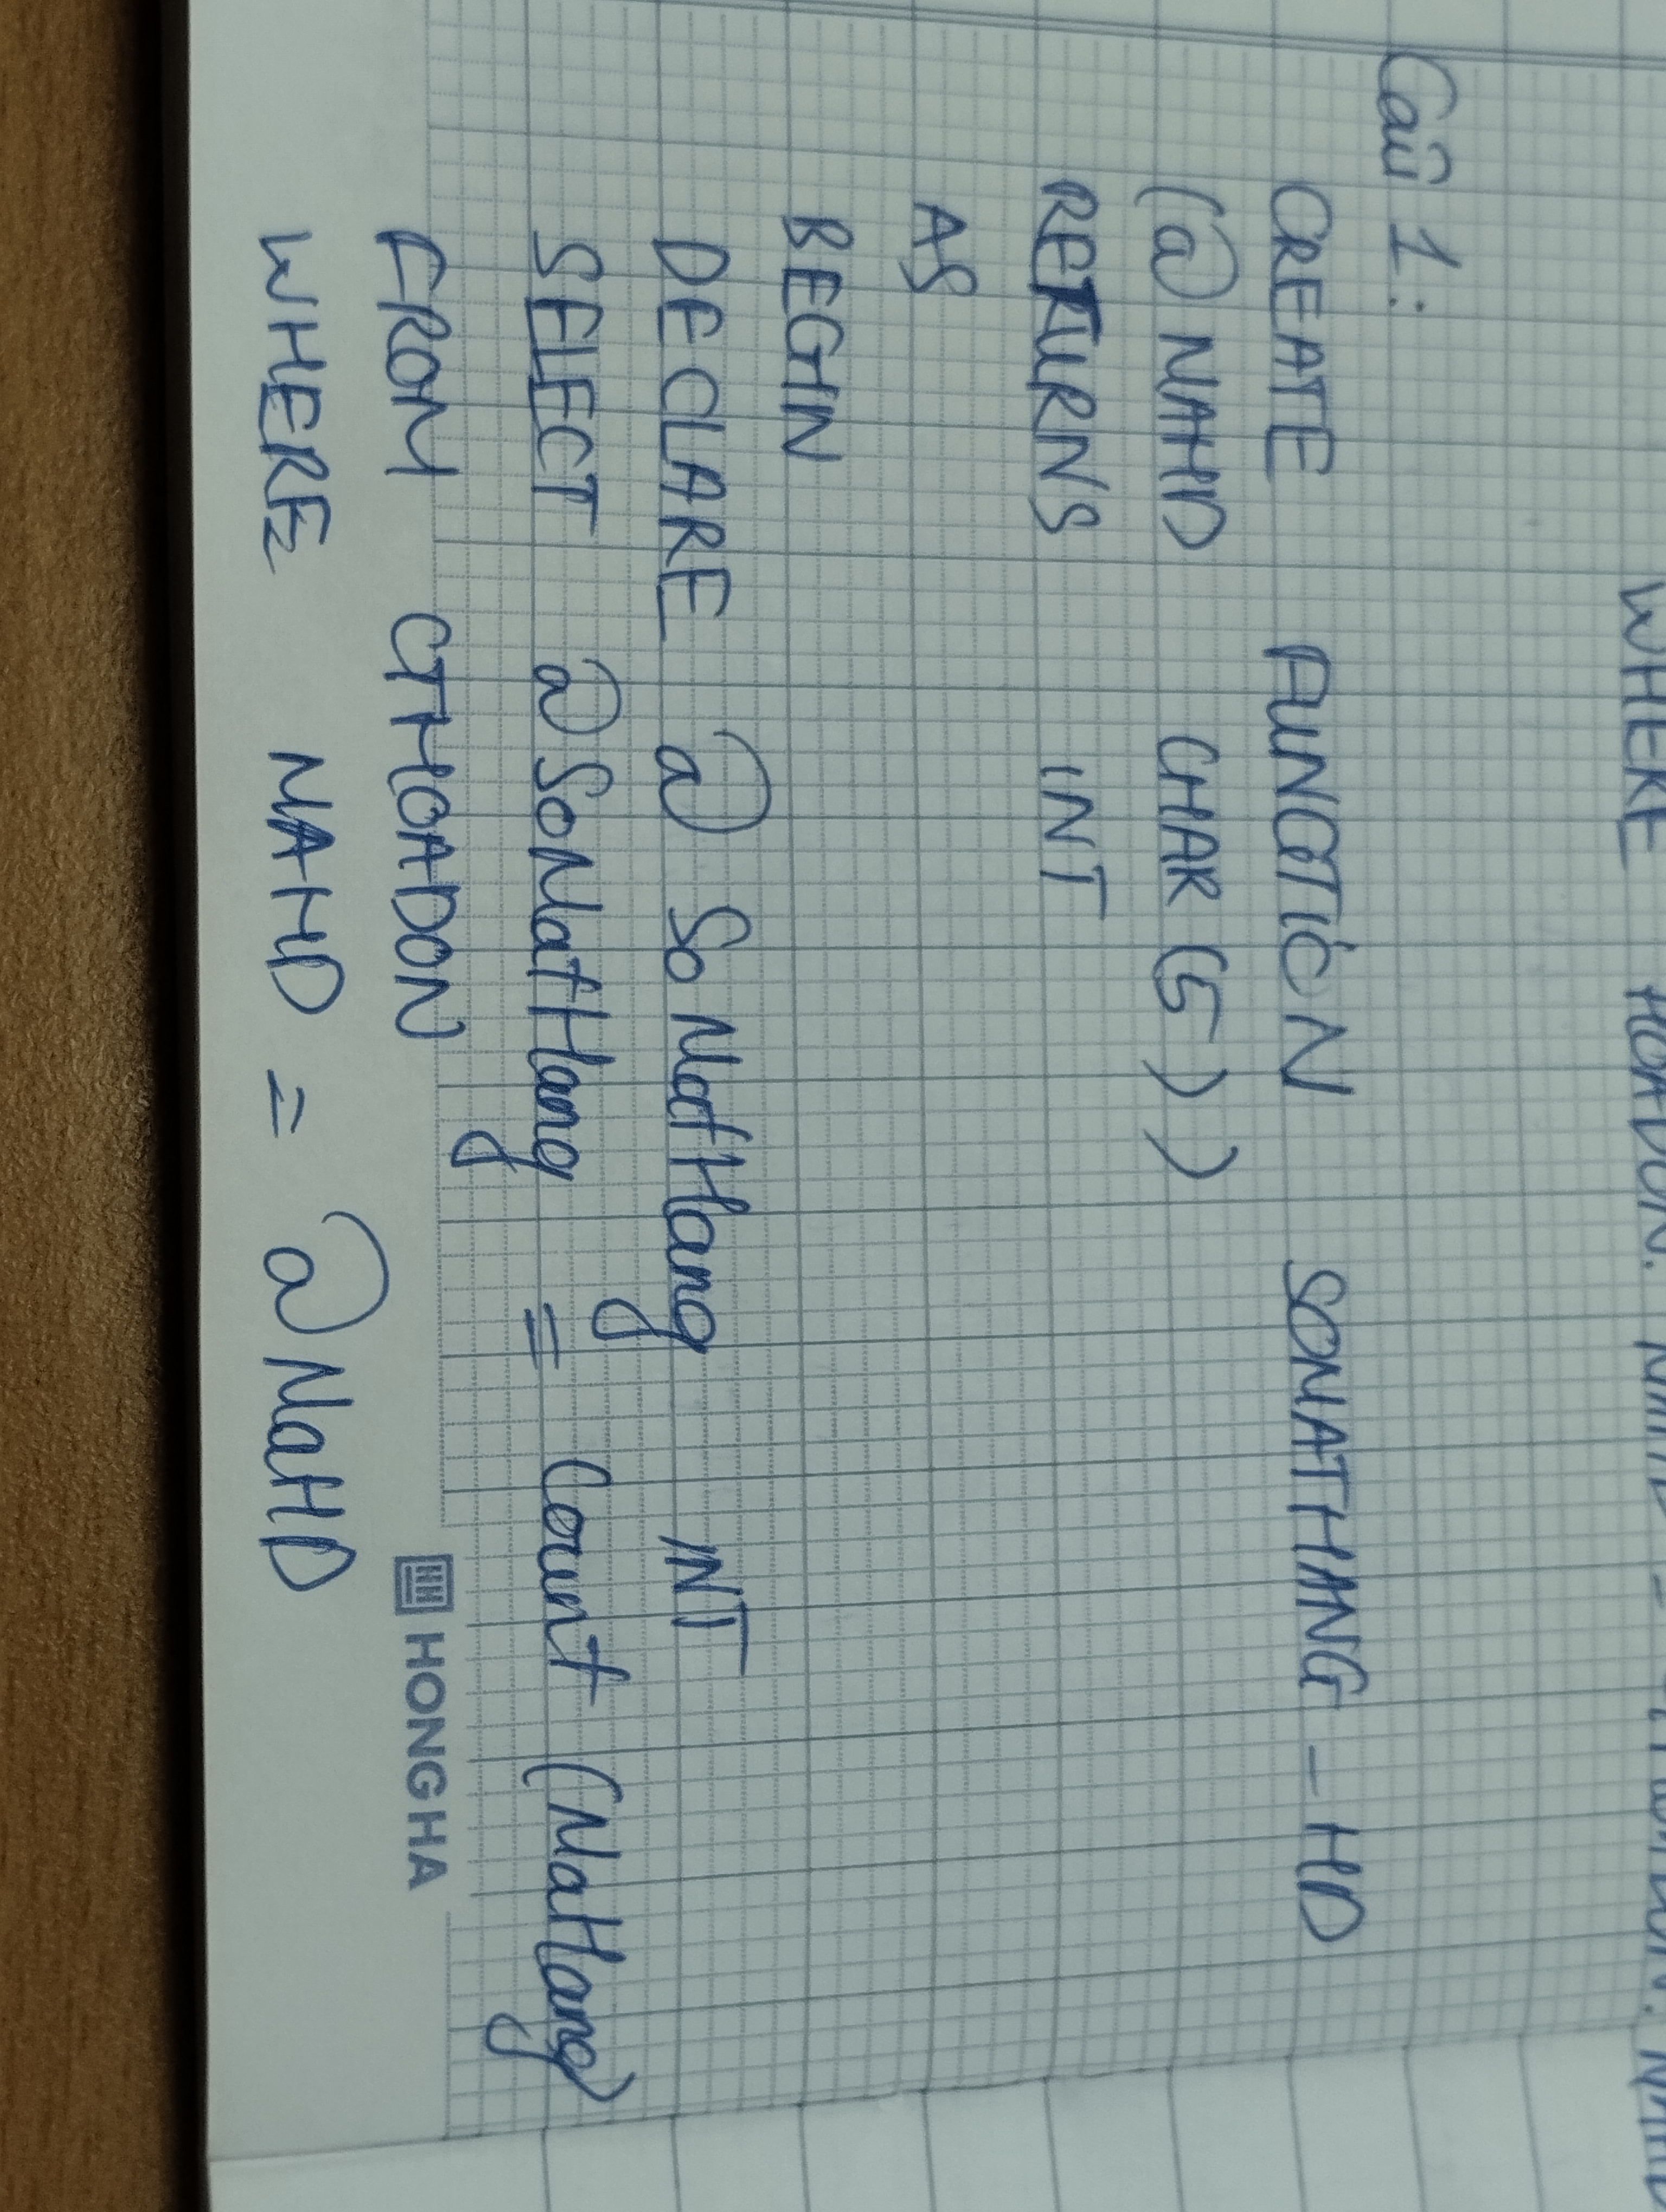 WHERE HOADON.
Câu 1:
CREATE FUNCTION SOMATHANG_HD
(@MAHD CHAR(5))
RETURNS INT
AS
BEGIN
DECLARE @SoMatHang INT
SELECT @SoMatHang = Count (MaHang)
FROM CTHOADON
WHERE MAHD = @MaHD
HONG HA